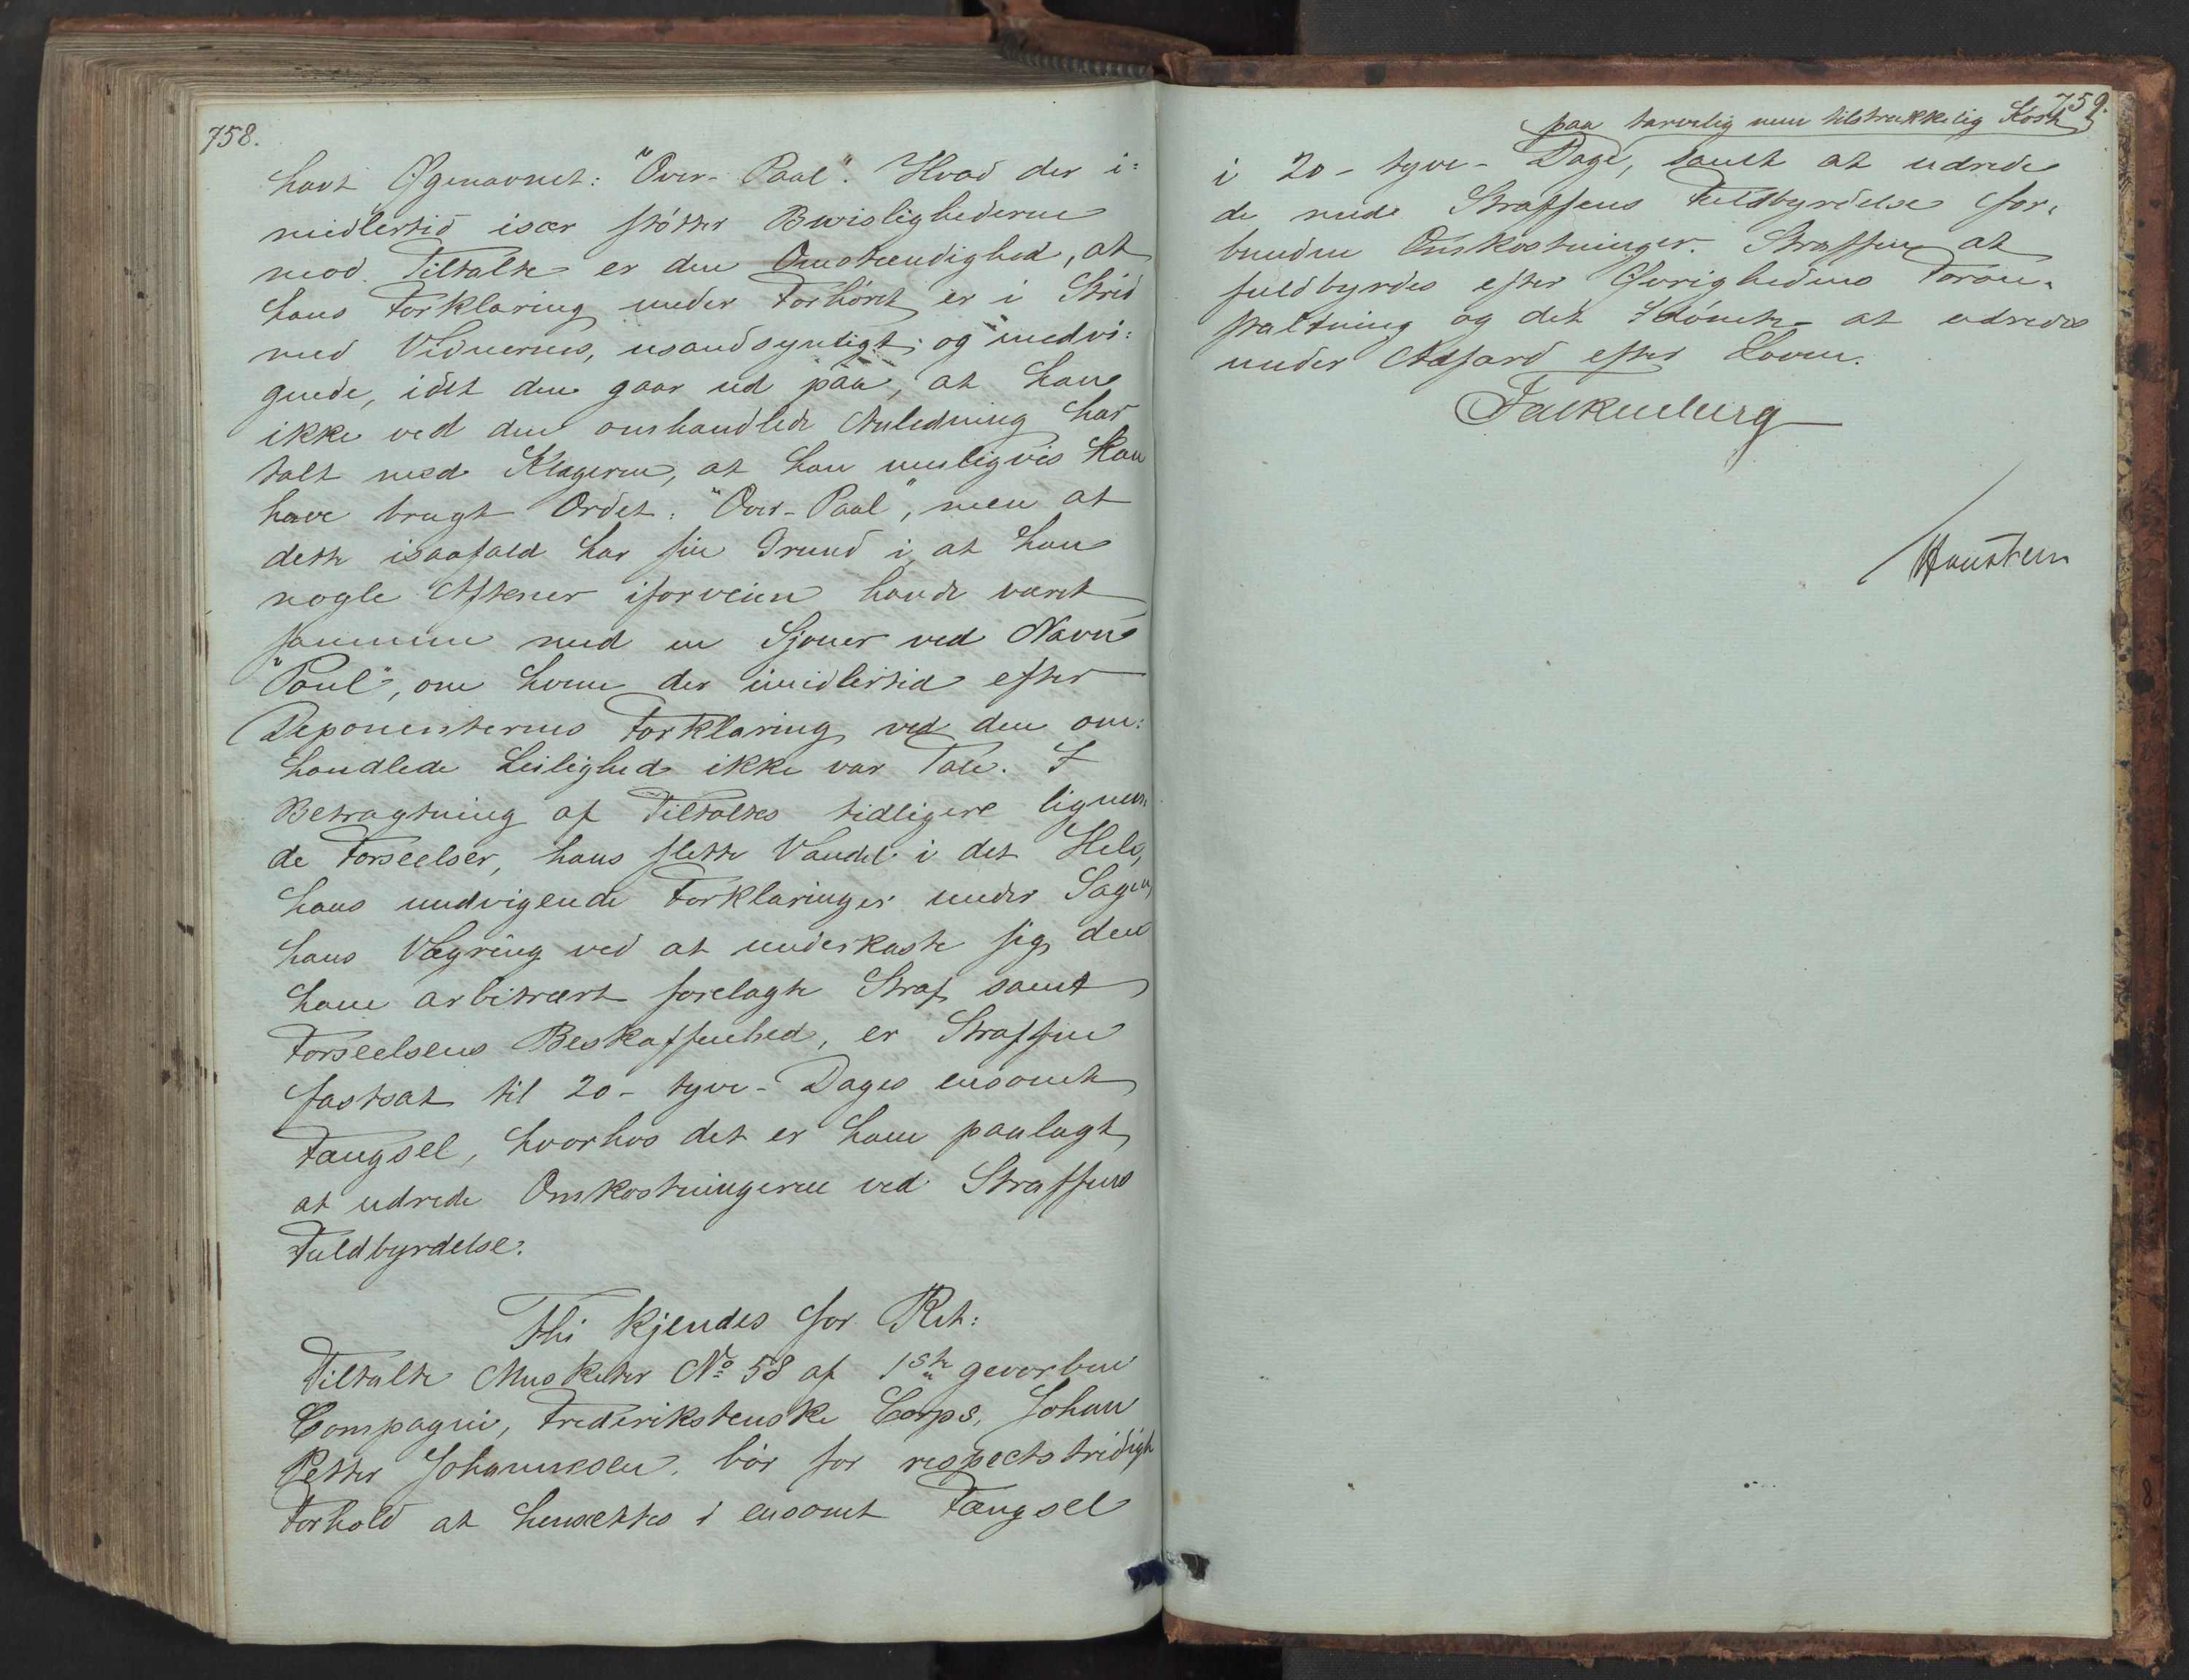 758.
havt Øgenavnet: "Over-Paal". Hvad der i=
midlertid især støtter Bevislighederne
mod Tiltalte er den Omstændighed, at
hans Forklaring under Forhøret er i Strid
med Vidnernes, usandsynligt og undvi=
gende, idet den gaar ud paa, at han
ikke ved den omhandlede Anledning har
talt med Klageren, at han muligvis kan
have brugt Ordet: "Over-Paal", men at
dette isaafald har sin Grund i, at han
nogle Aftener iforveien havde været
sammen med en Sjouer ved Navn
"Paul", om hvem der imidlertid efter
Deponenternes Forklaring ved den om=
handlede Leilighed ikke var Tale. I
Betragtning af Tiltaltes tidligere lignen=
de Forseelser, hans slette Vandel i det Hele,
hans undvigende Forklaringer under Sagen,
hans Vægring ved at underkaste sig den
ham arbitrært forelagte Straf samt
Forseelsens Beskaffenhed, er Straffen
fastsat til 20 - tyve - Dages ensomt
Fængsel, hvorhos det er ham paalagt,
at udrede Omkostningerne ved Straffens
Fuldbyrdelse.
Thi kjendes for Ret:
Tiltalte Musketer No 58 af 1ste gevorbne
Compagni, Frederikstenske Corps, Johan
Petter Johannesen, bør for respectstridigt
Forhold at hensættes i ensomt Fængsel
759.
paa tarvelig men tilstrækkelig Kost
i 20 - tyve - Dage, samt at udrede
de med Straffens Fuldbyrdelse for=
bundne Omkostninger. Straffen at
fuldbyrdes efter Øvrighedens Foran=
staltning og det Idømte at udredes
under Adfærd efter Loven.
Falkenberg
Haustern